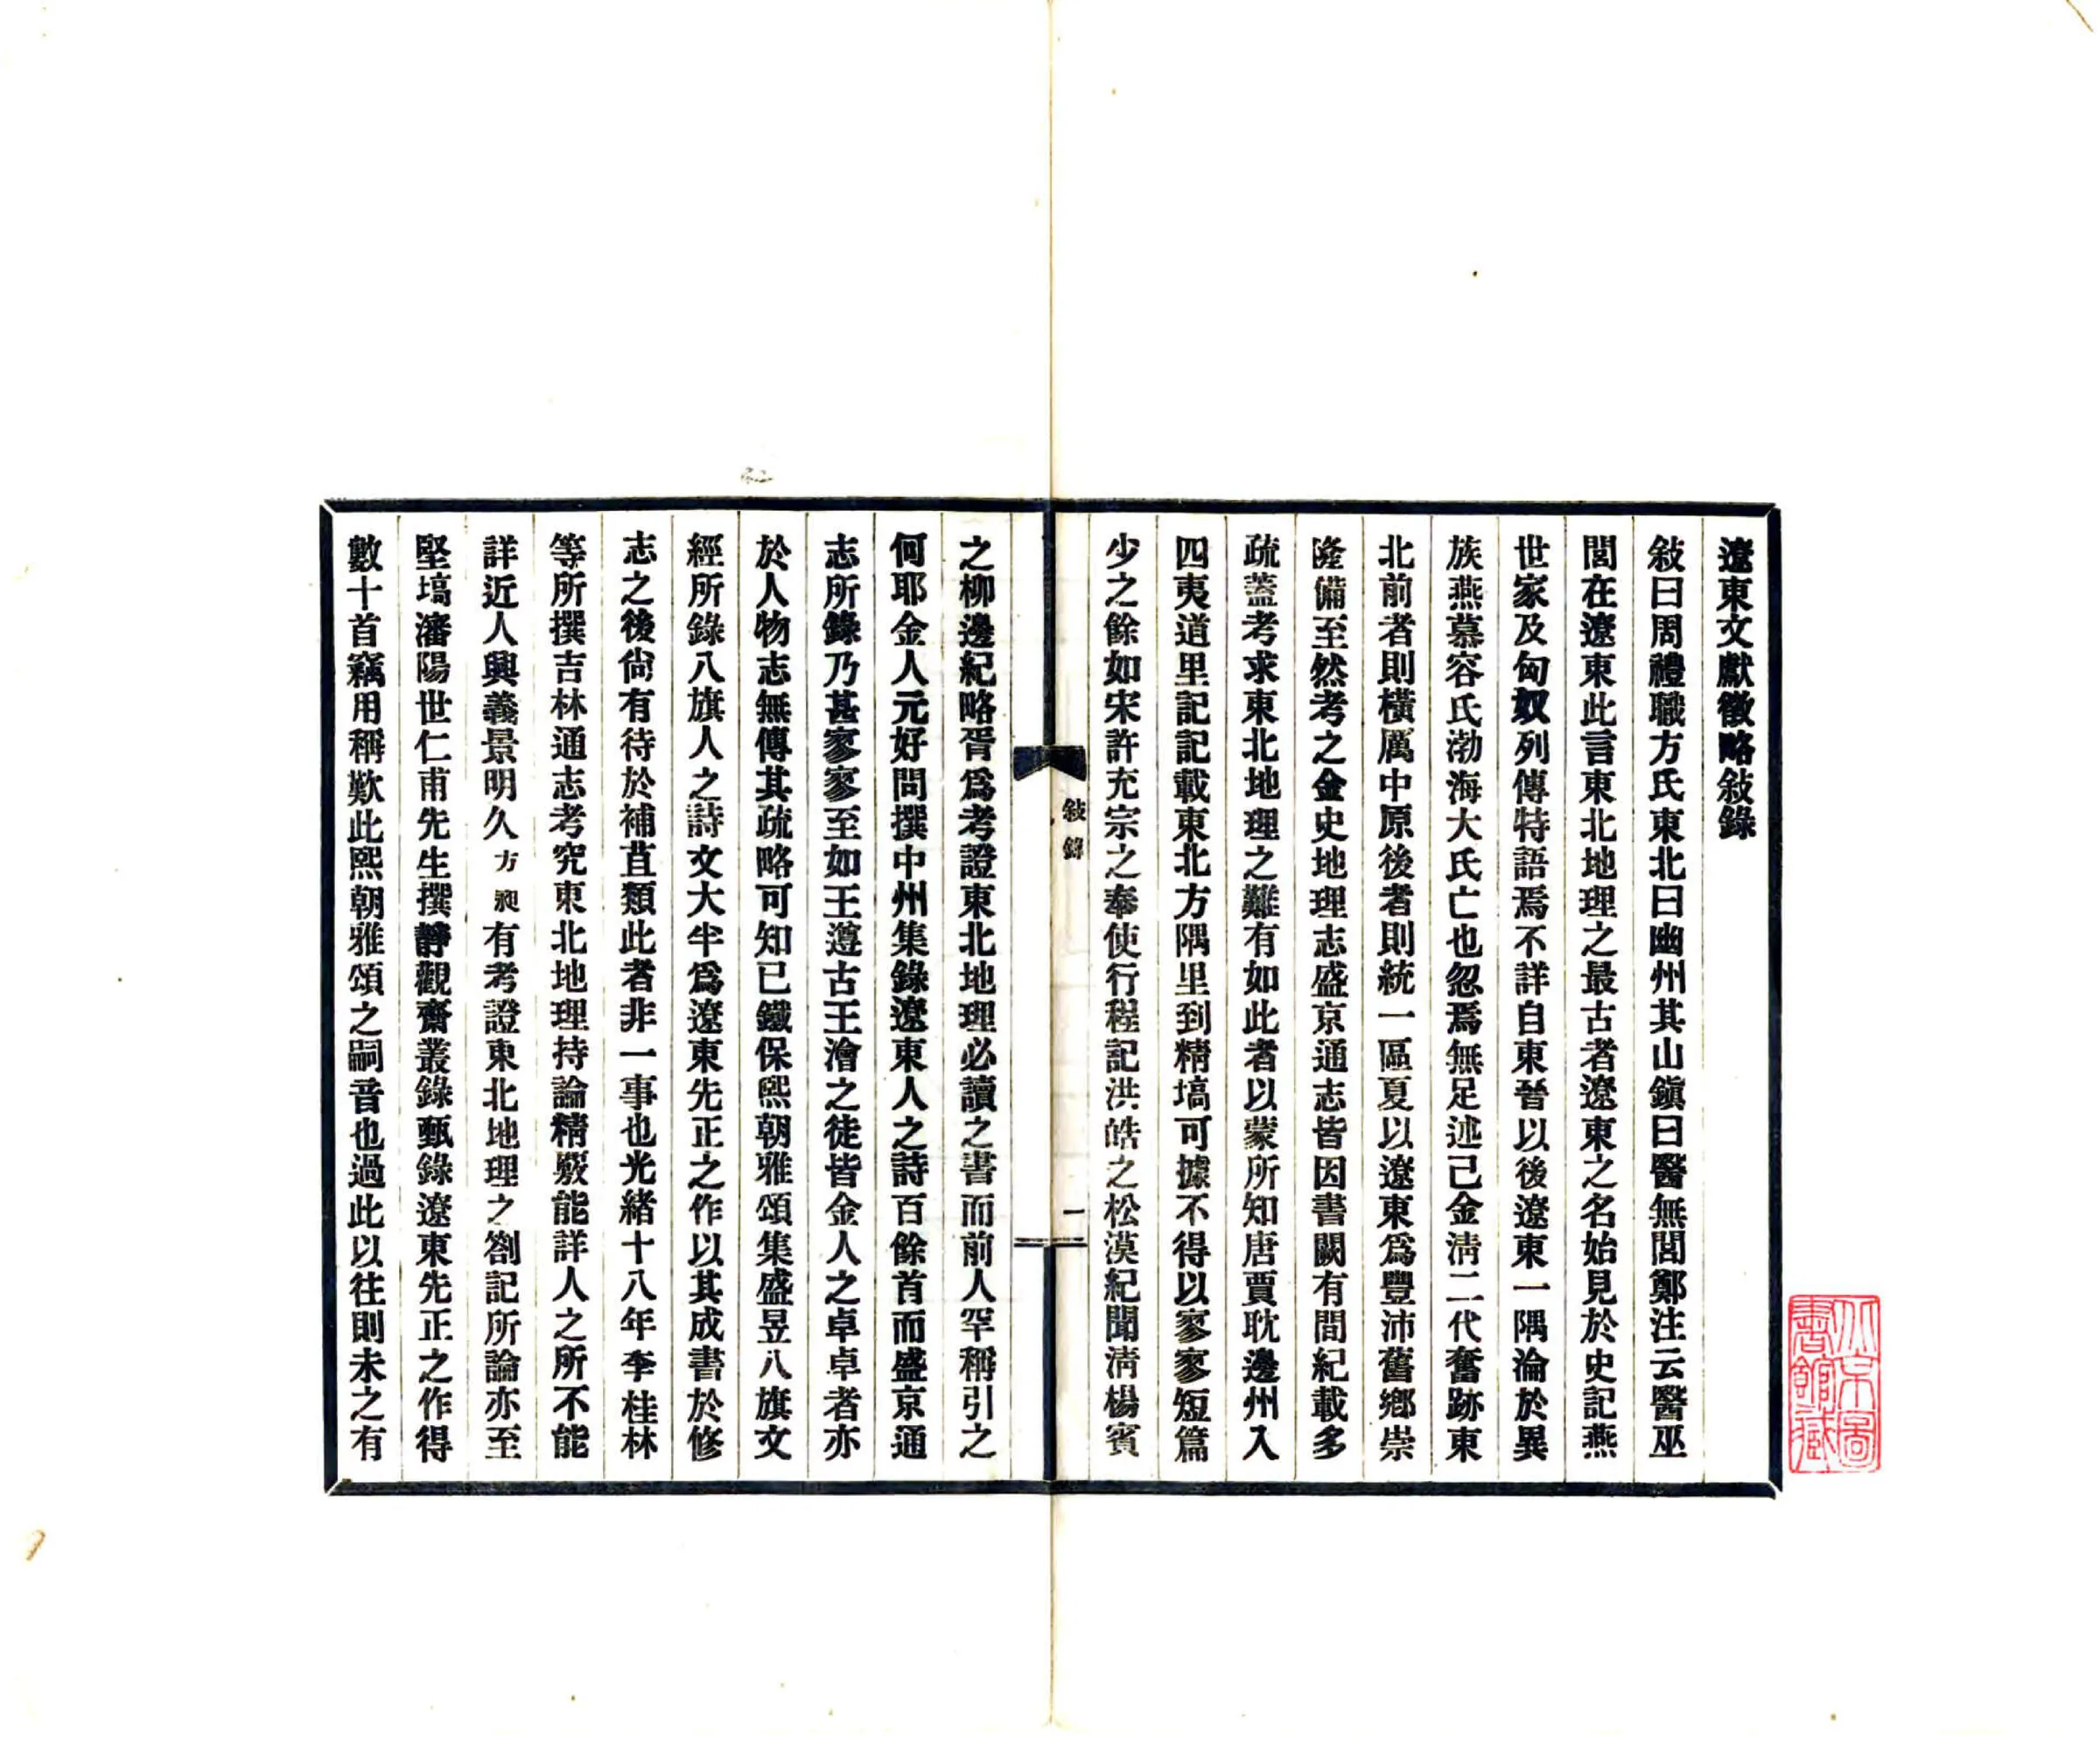 遼東文獻徵略敍錄
敍曰周禮職方氏東北曰幽州其山鎭曰醫無閭鄭注云醫巫
閭在遼東此言東北地理之最古者遼東之名始見於史記燕
世家及匈奴列傳特語焉不詳自東晉以後遼東一隅淪於異
族燕慕容氏渤海大氏亡也忽焉無足述己金淸二代奮跡東
北前者則橫厲中原後者則統一區夏以遼東爲豐沛舊鄕崇
隆備至然考之金史地理志盛京通志皆因書闕有間紀載多
疏蓋考求東北地理之難有如此者以蒙所知唐賈耽邊州入
四夷道里記記載東北方隅里到精塙可據不得以寥寥短篇
少之餘如宋許充宗之奉使行程記洪皓之松漠紀聞淸楊賓
敍錄
一
之柳邊紀略胥爲考證東北地理必讀之書而前人罕稱引之
何耶金人元好問撰中州集錄遼東人之詩百餘首而盛京通
志所錄乃甚寥寥至如王遵古王澮之徒皆金人之卓卓者亦
於人物志無傳其疏略可知已鐵保熙朝雅頌集盛昱八旗文
經所錄八旗人之詩文大半爲遼東先正之作以其成書於修
志之後尙有待於補苴類此者非一事也光緒十八年李桂林
等所撰吉林通志考究東北地理持論精覈能詳人之所不能
詳近人興義景明久方昶有考證東北地理之劄記所論亦至
堅塙瀋陽世仁甫先生撰靜觀齋叢錄甄錄遼東先正之作得
數十首竊用稱歎此熙朝雅頌之嗣音也過此以往則未之有
北京圖
書館藏